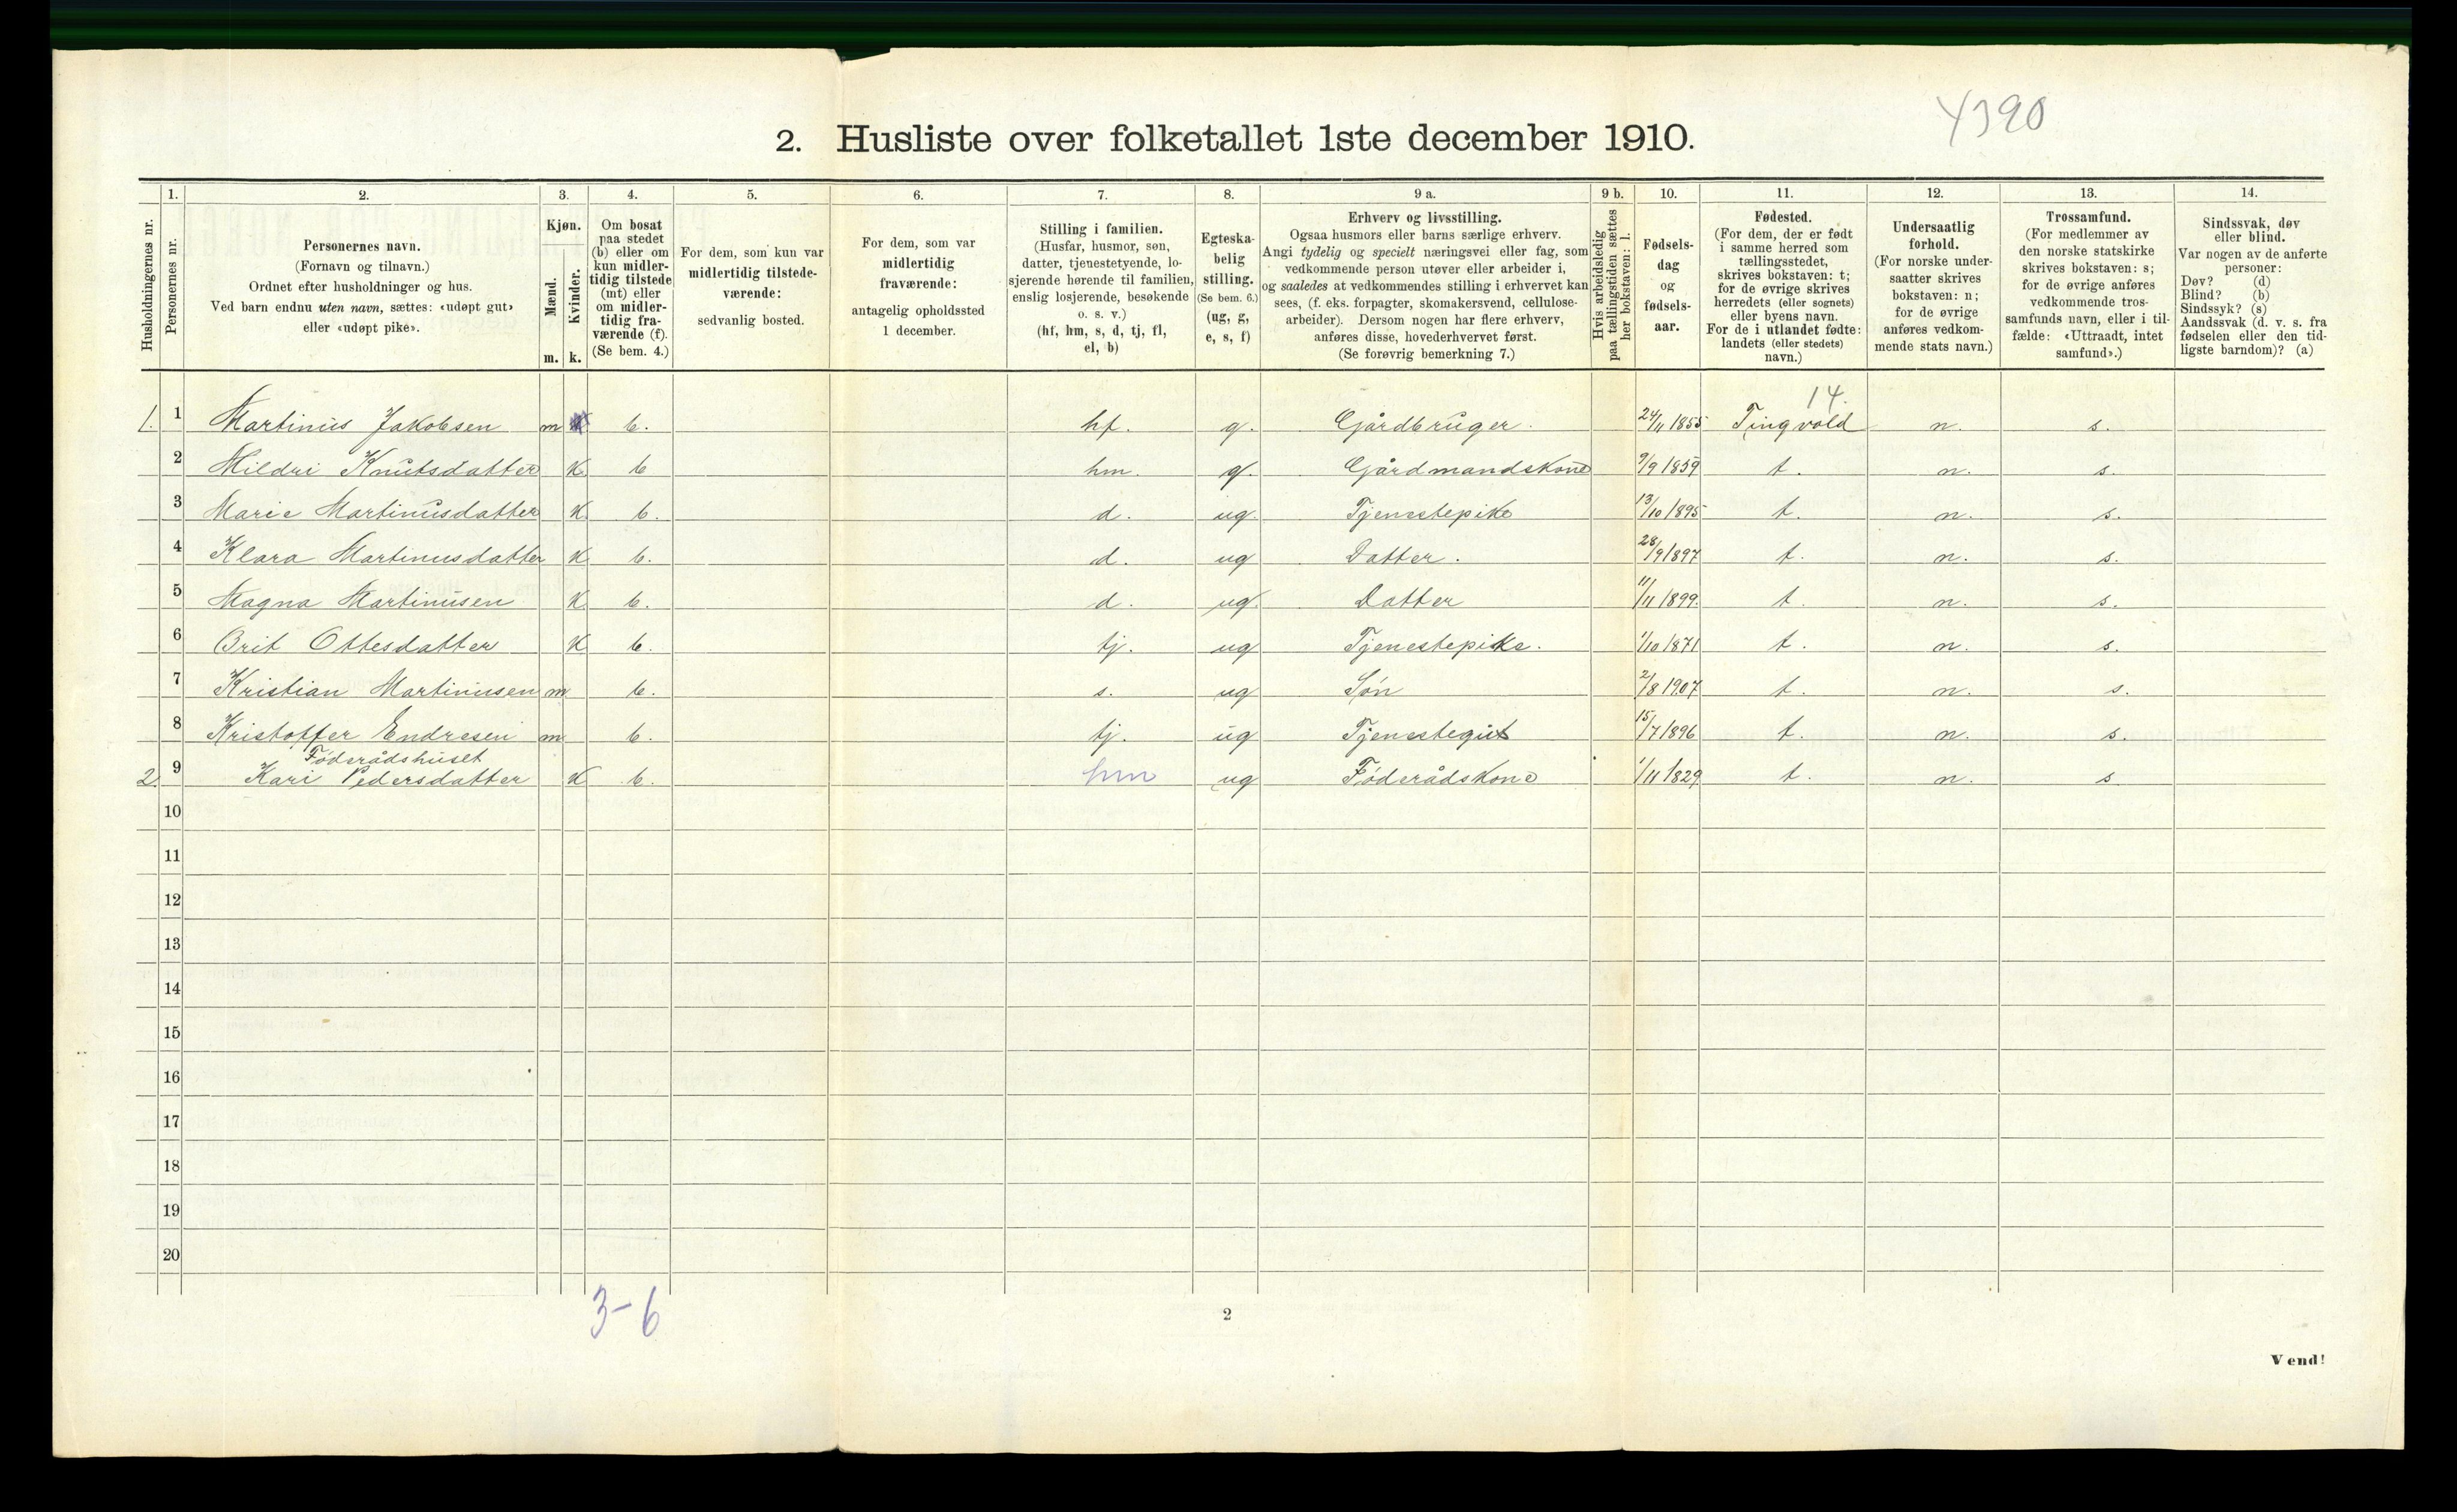 4390
2. Husliste over folketallet 1ste december 1910.
Husholdningernes nr.
1. Personernes nr.
2. Personernes navn. (Fornavn og tilnavn.) Ordnet efter husholdninger og hus. Ved barn endnu uten navn, sættes: «udøpt gut» eller «udøpt pike».
3. Kjøn. Mænd. m. Kvinder. k.
4. Om bosat paa stedet (b) eller om kun midlertidig tilstede (mt) eller om midlertidig fraværende (f). (Se bem. 4.)
5. For dem, som kun var midlertidig tilstedeværende: sedvanlig bosted.
6. For dem, som var midlertidig fraværende: antagelig opholdssted 1 december.
7. Stilling i familien. (Husfar, husmor, søn, datter, tjenestetyende, losjerende hørende til familien, enslig losjerende, besøkende o. s. v.) (hf, hm, s, d, tj, fl, el, b)
8. Egteskabelig stilling. (Se bem. 6.) (ug, g, e, s, f)
9 a. Erhverv og livsstilling. Ogsaa husmors eller barns særlige erhverv. Angi tydelig og specielt næringsvei eller fag, som vedkommende person utøver eller arbeider i, og saaledes at vedkommendes stilling i erhvervet kan sees, (f. eks. forpagter, skomakersvend, cellulosearbeider). Dersom nogen har flere erhverv, anføres disse, hovederhvervet først. (Se forøvrig bemerkning 7.)
9 b. Hvis arbeidsledig paa tællingstiden sættes her bokstaven: l.
10. Fødselsdag og fødselsaar.
11. Fødested. (For dem, der er født i samme herred som tællingsstedet, skrives bokstaven: t; for de øvrige skrives herredets (eller sognets) eller byens navn. For de i utlandet fødte: landets (eller stedets) navn.)
12. Undersaatlig forhold. (For norske undersaatter skrives bokstaven: n; for de øvrige anføres vedkommende stats navn.)
13. Trossamfund. (For medlemmer av den norske statskirke skrives bokstaven: s; for de øvrige anføres vedkommende trossamfunds navn, eller i tilfælde: «Uttraadt, intet samfund».)
14. Sindssvak, døv eller blind. Var nogen av de anførte personer: Døv? (d) Blind? (b) Sindssyk? (s) Aandssvak (d. v. s. fra fødselen eller den tidligste barndom)? (a)
14.
1. 1 Martinus Jakobsen m b. hf. g. Gårdbruger. 24/11 1855 Tingvold n. s.
2 Mildri Knutsdatter K b hm. g. Gårdmandskone 9/9 1859 t. n. s.
3 Marie Martinusdatter K b. d. ug. Tjenestepike 13/10 1895 t. n. s.
4 Klara Martinusdatter K b. d. ug Datter. 28/9 1897 t. n. s.
5 Magna Martinusen K b. d. ug. Datter 11/11 1899. t. n. s.
6 Brit Ottesdatter K b. tj. ug Tjenestepike. 1/10 1871 t. n. s.
7 Kristian Martinusen m b. s. ug Søn 2/8 1907 t. n. s.
8 Kristoffer Endresen m b. tj. ug Tjenestegut 15/7 1896 t. n. s.
Føderådshuset
2. 9 Kari Pedersdatter K b. hm ug Føderådskone 1/11 1829 t. n. s
10
11
12
13
14
15
16
17
18
19
20
3-6
2
Vend!